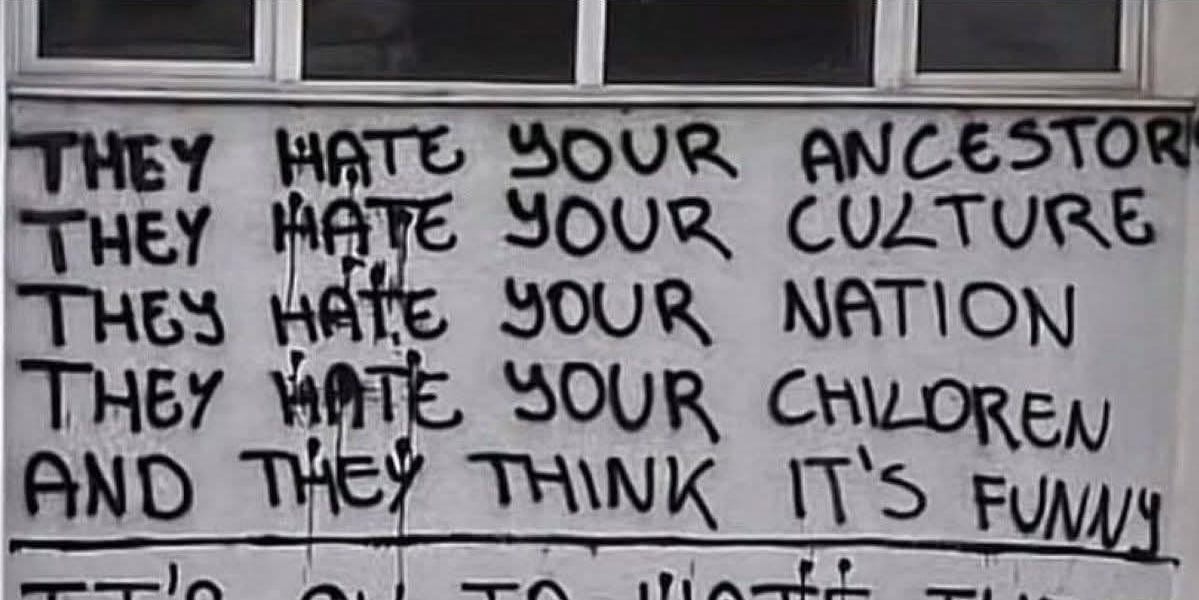 THEY HATE YOUR ANCESTOR
THEY HATE YOUR CULTURE
THEY HATE YOUR NATION
THEY HATE YOUR CHILDREN
AND THEY THINK IT'S FUNNY
IT'S OK TO HATE